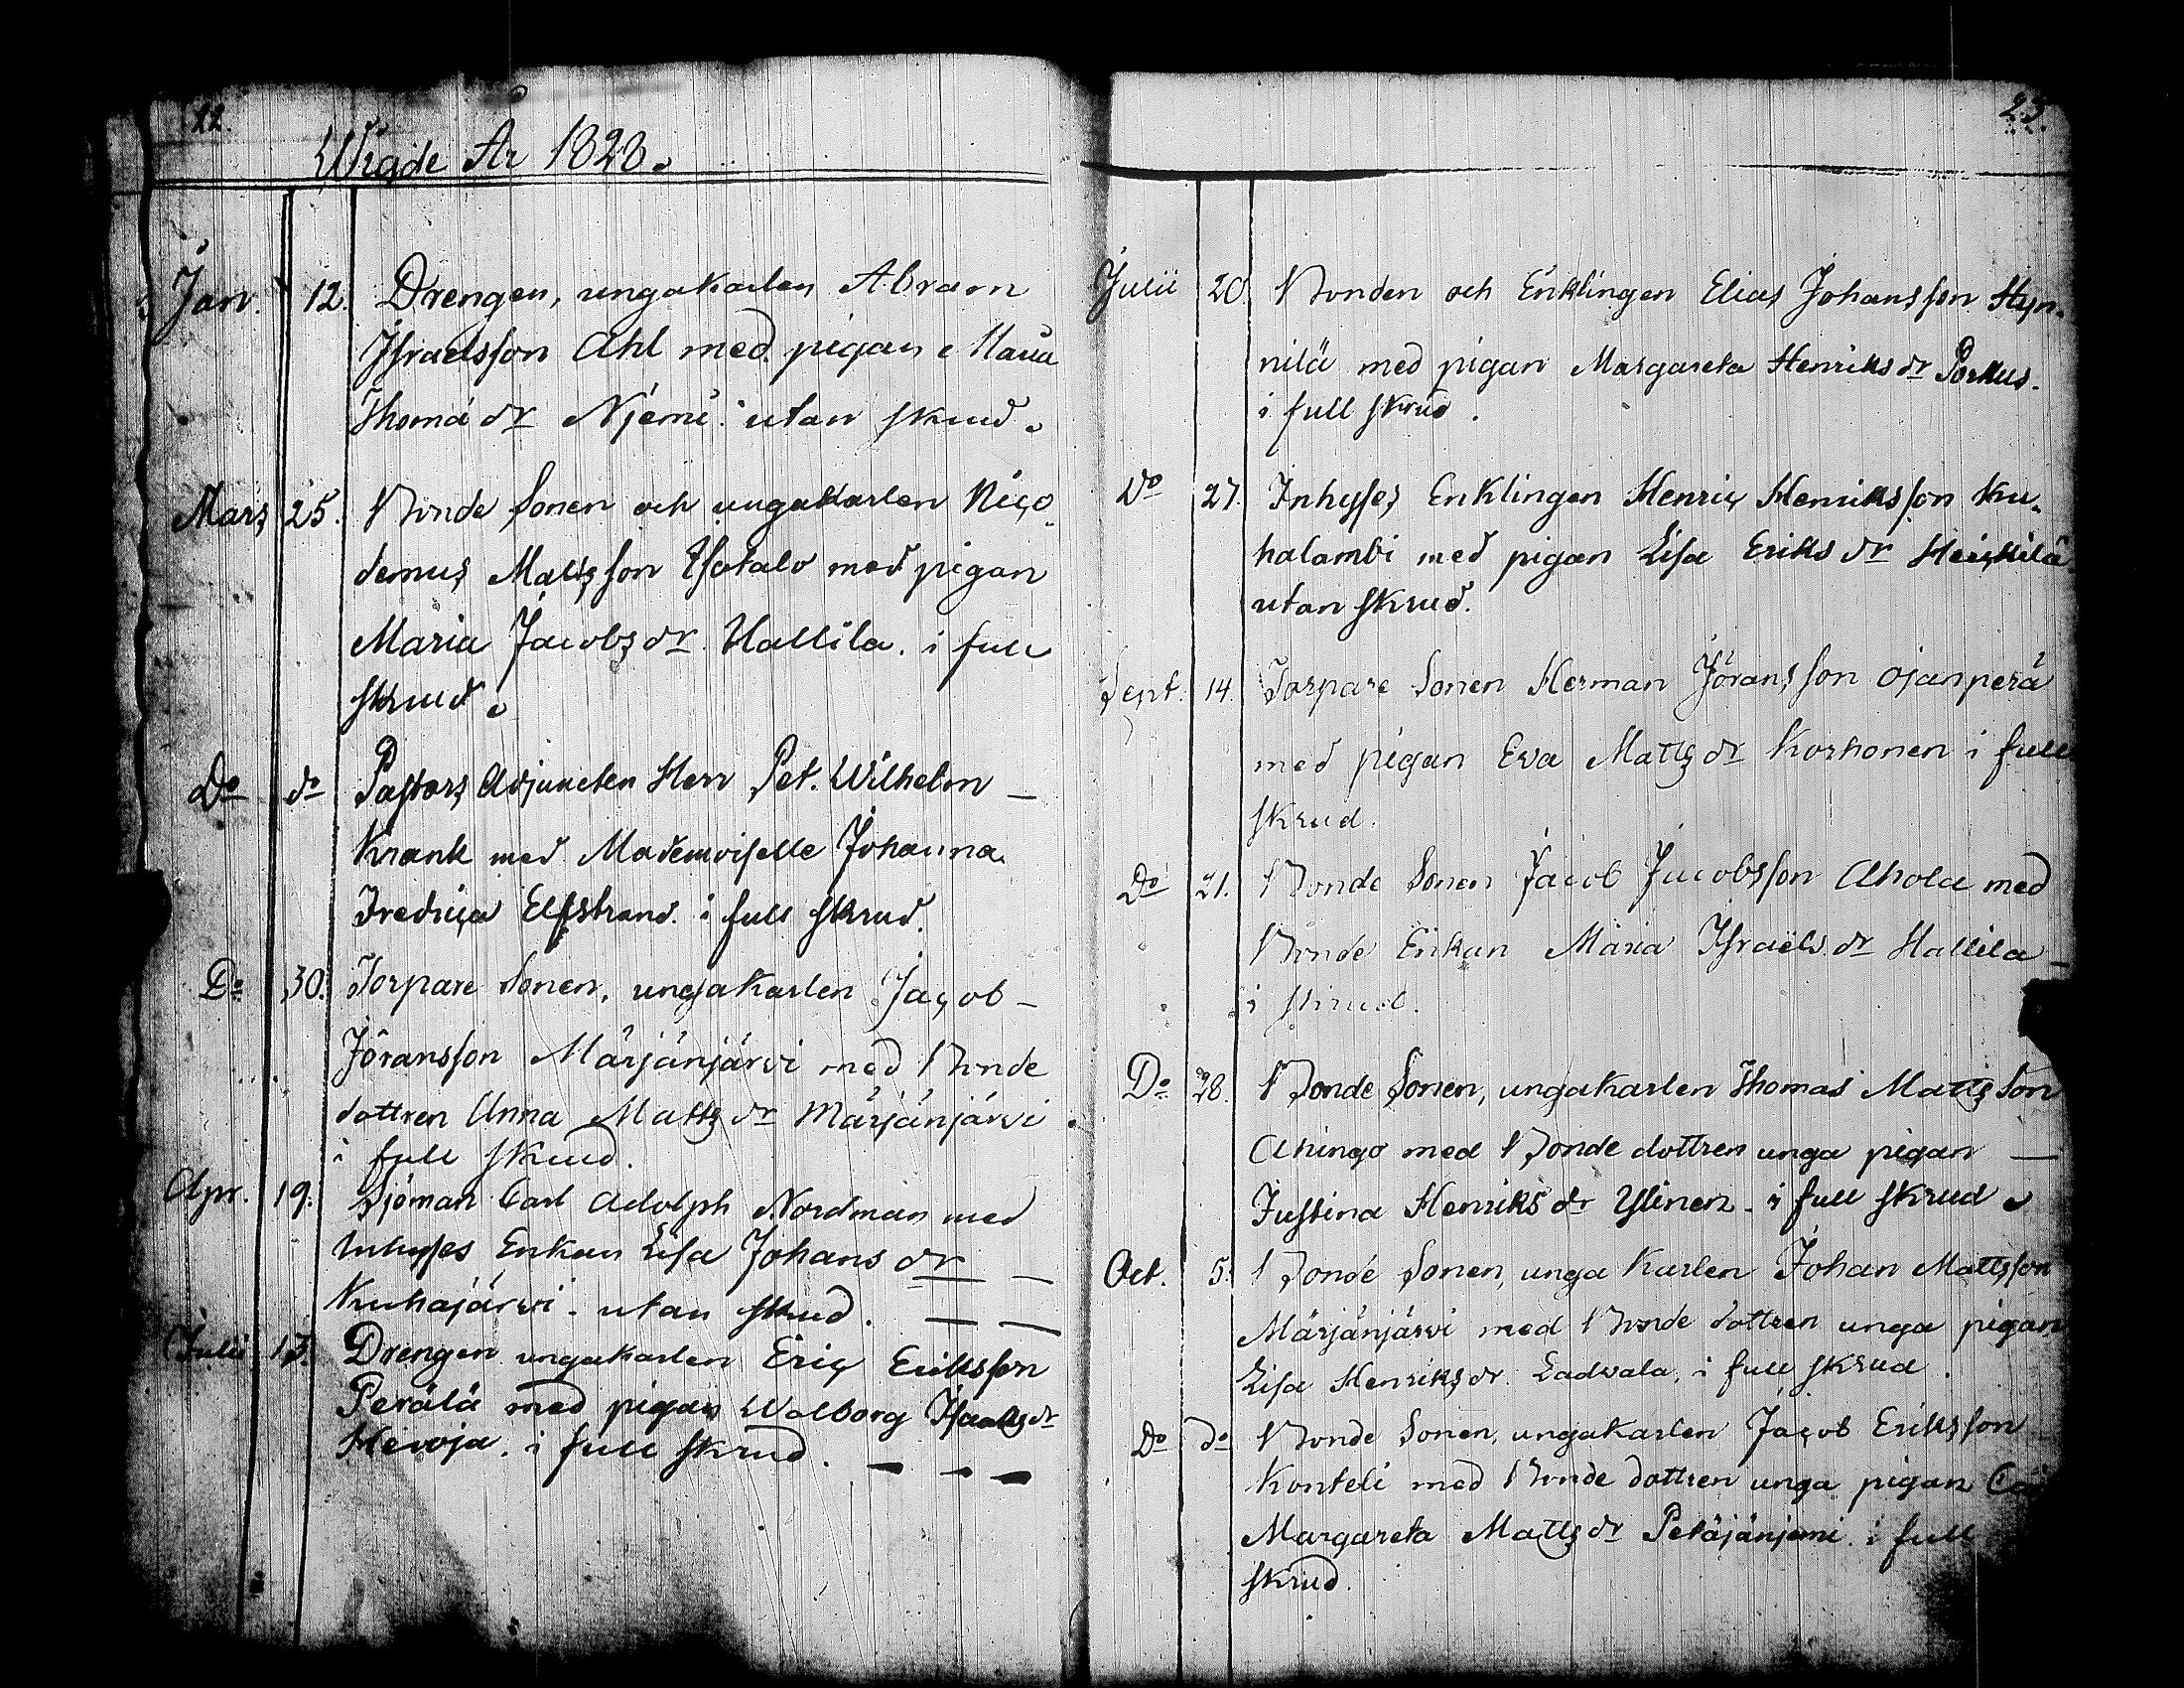 22.
Wigde År 1828.
Jan. 12. Drengen, ungakarlen Abram
Israelsson Ahl med pigan Maria
Thomä dr Njemi utan skrud.
Mars 25. Bonde Sonen och ungakarlen Nico-
demus Matts son Ylitalo med pigan
Maria Jacobs dr Hallila. i full
skrud.
Do do Pastors Adjuncten Herr Pet. Wilhelm
Krank med Mademoiselle Johanna
Fredrica Elfstrand. i full skrud.
Do 30. Torpare Sonen, ungakarlen Jacob
Jöransson Märjänjärvi med Bonde
dottren Anna Matts dr Märjänjärvi
i full skrud.
Apr. 19. Sjöman Carl Adolph Nordman med
Inhyses Enkan Lisa Johans dr
Kuhajärvi. utan skrud.
Julii 13. Drengen ungakarlen Eric Eriksson
Perälä med pigan Walborg Isaacs dr
Hevoja. i full skrud.
23.
Julii 20. Bonden och Enklingen Elias Johansson Hyn-
nilä med pigan Margareta Henriks dr Porkus.
i full skrud.
Do 27. Inhyses Enklingen Henric Henriksson Ku-
halambi med pigan Lisa Eriks dr Heickilä
utan skrud.
Sept. 14. Torpare Sonen Herman Jörans son Ojanperä
med pigan Eva Matts dr Korhonen i full
skrud.
Do 21. Bonde Sonen Jacob Jacobsson Ahola med
Bonde Enkan Maria Israels dr Hallila
i skrud.
Do 28. Bonde Sonen, ungakarlen Thomas Matts Son
Ahingo med Bonde dottren unga pigan
Justina Henriks dr Ylinen. i full skrud.
Oct. 5. Bonde Sonen, unga karlen Johan Mattsson
Märjänjärvi med Bonde dottren unga pigan
Lisa Henriks dr Ladvala, i full skrud.
Do do Bonde Sonen, ungakarlen Jacob Eriksson
Konteli med Bonde dottren unga pigan
Margareta Matts dr Petäjäniemi. i full
skrud.